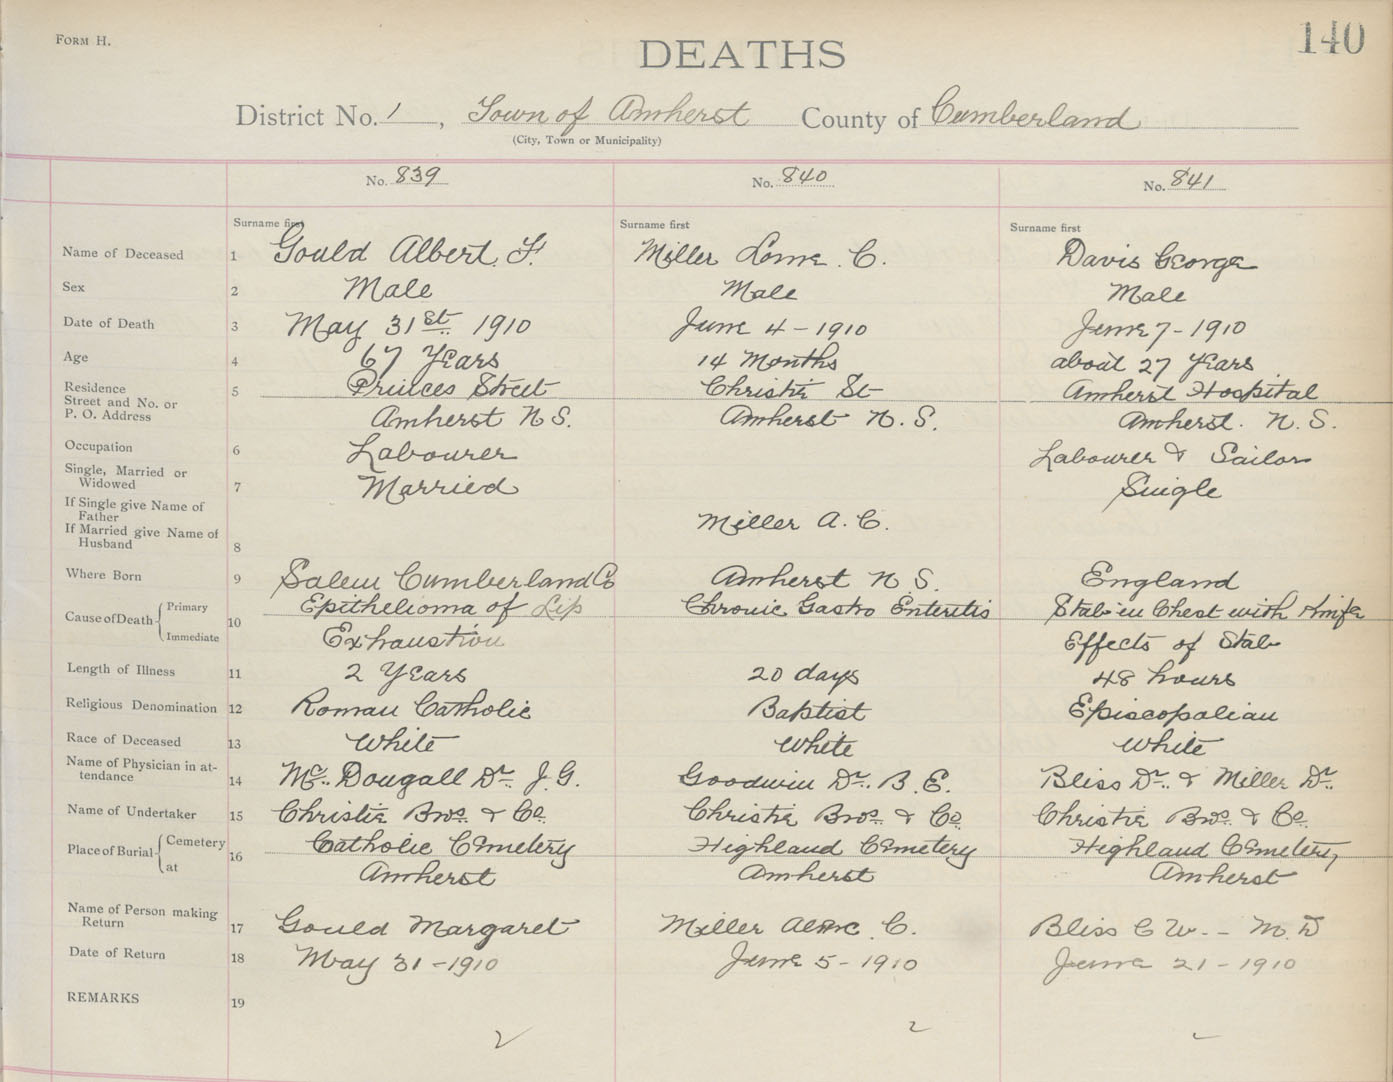 FORM H.
140
DEATHS
District No. 1, Town of Amherst County of Cumberland
(City, Town or Municipality)
No. 839 No. 840 No. 841
Surname first Surname first Surname first
Name of Deceased 1 Gould Albert. F. Miller Lorne. C. Davis George
Sex 2 Male Male Male
Date of Death 3 May 31st 1910 June 4 - 1910 June 7 - 1910
Age 4 67 Years 14 Months about 27 Years
Residence
Street and No. or 5 Princes Street Christie St Amherst Hospital
P. O. Address Amherst N S. Amherst N. S. Amherst. N. S.
Occupation 6 Labourer Labourer & Sailor
Single, Married or
Widowed 7 Married Single
If Single give Name of
Father
Miller A. C.
If Married give Name of
Husband 8
Where Born 9 Salem Cumberland Co Amherst N S. England
Cause of Death Primary 10 Epithelioma of Lip Chronic Gastro Enteritis Stab in Chest with Knife
Immediate Exhaustion Effects of Stab
Length of Illness 11 2 Years 20 days 48 hours
Religious Denomination 12 Roman Catholic Baptist Episcopalian
Race of Deceased 13 White White White
Name of Physician in at-
tendance 14 Mc. Dougall Dr. J. G. Goodwin Dr. B. E. Bliss Dr. & Miller Dr.
Name of Undertaker 15 Christie Bros. & Co. Christie Bros. & Co. Christie Bros. & Co.
Place of Burial Cemetery 16 Catholic Cemetery Highland Cemetery Highland Cemetery
at Amherst Amherst Amherst
Name of Person making
Return 17 Gould Margaret Miller C. Bliss C W. - M. D
Date of Return 18 May 31 - 1910 June 5 - 1910 June 21 - 1910
REMARKS 19